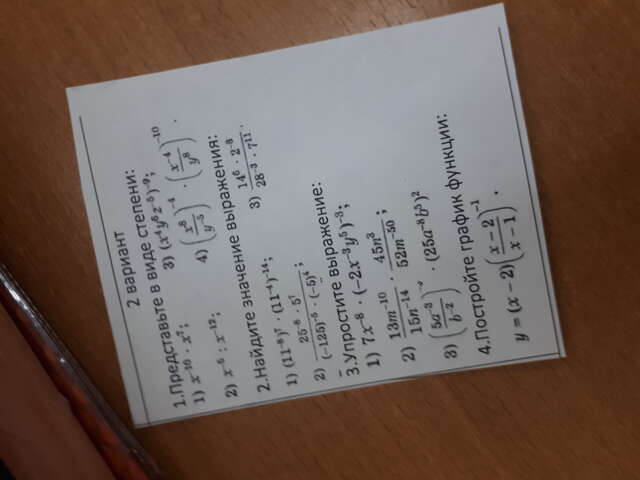 2 вариант
1.Представьте в виде степени:
1) x⁻¹⁰ · x⁷;
3) (x⁴y⁶z⁻⁵)⁻⁹;
2) x⁻⁵ : x⁻¹²;
4) (x⁸/y⁻⁵)⁻⁴ · (x⁻⁴/y⁸)⁻¹⁰.
2.Найдите значение выражения:
1) (11⁻⁸)⁷ · (11⁻⁴)⁻¹⁴;
3) 14⁶ · 2⁻⁸ / 28⁻³ · 7¹¹.
2) 25⁻⁸ · 5⁷ / (–125)⁻⁵ · (–5)⁴;
3.Упростите выражение:
1) 7x⁻⁸ · (–2x⁻³y⁵)⁻³;
2) 13m⁻¹⁰/15n⁻¹⁴ · 45n³/52m⁻⁵⁰;
3) (5a⁻³/b⁻²) · (25a⁻⁸b⁵)²
4.Постройте график функции:
y = (x – 2)(x – 2/x – 1)⁻¹.